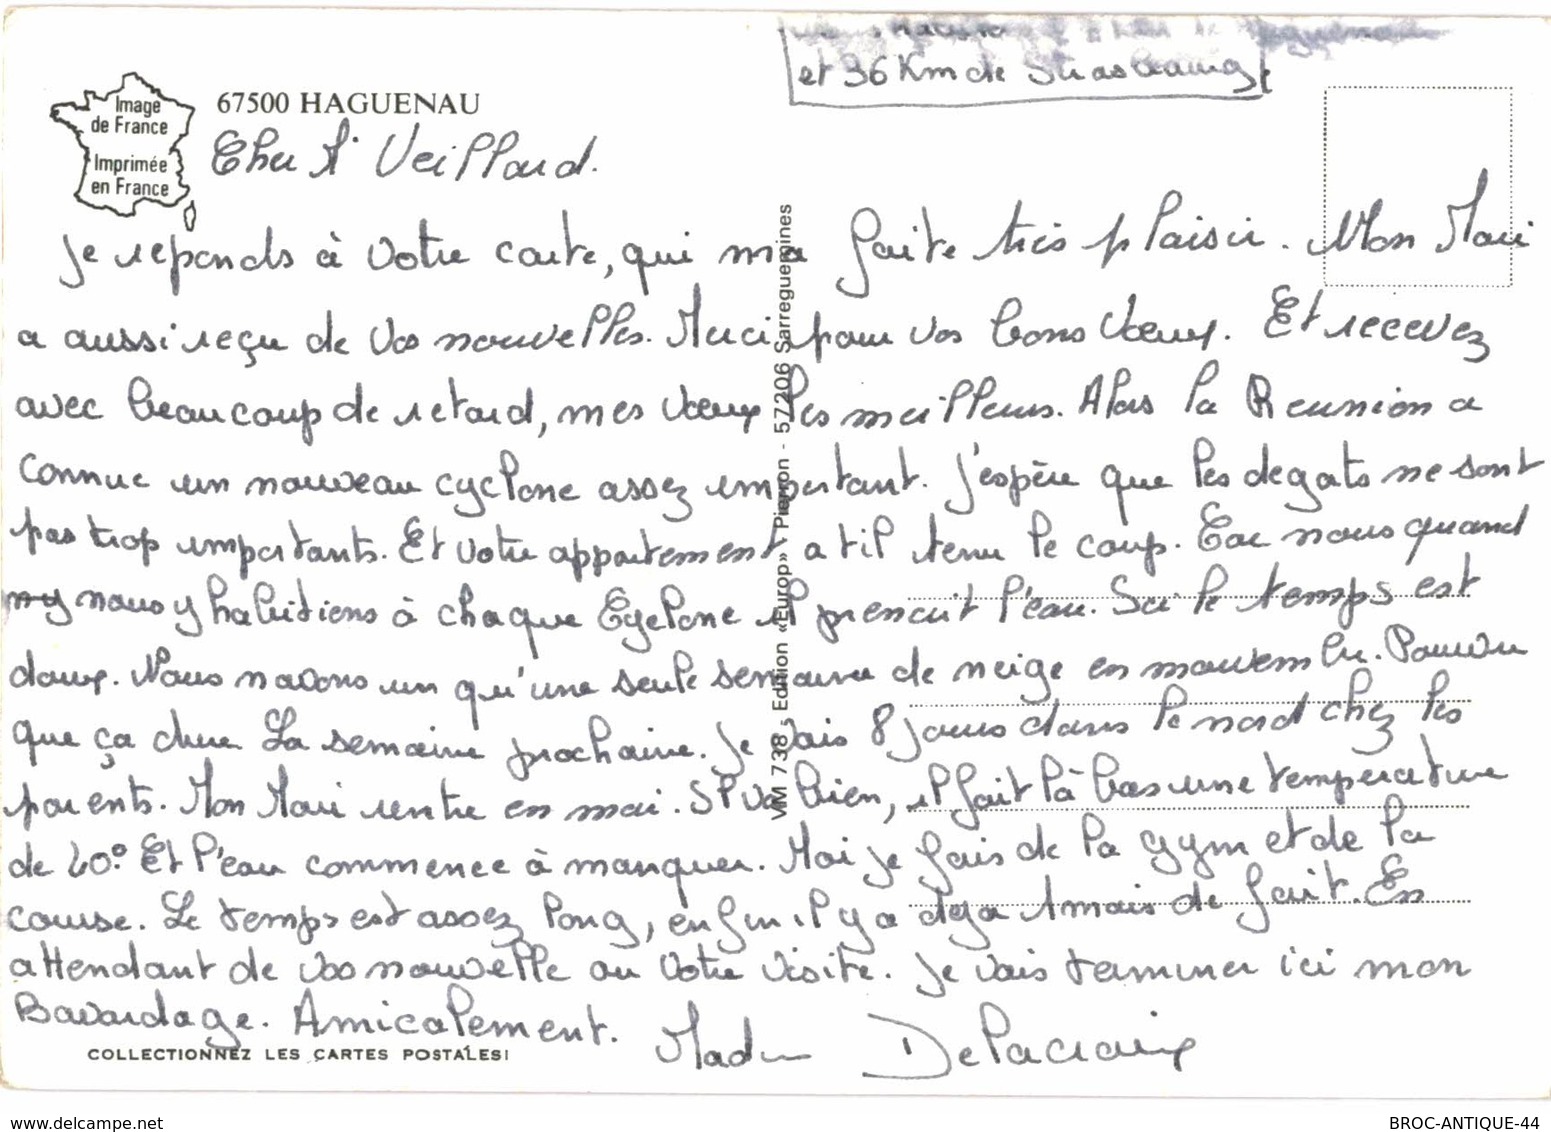 et 36 Km de Strasbourg
Image
de France
Imprimée
en France
67500 HAGUENAU
Cher Mr Veillard.
Je reponds à votre carte, qui ma faite très plaisir. Mon Mari
a aussi reçu de vos nouvelles. Merci pour vos bons Voeux. Et recevez
avec beaucoup de retard, mes voeux les meilleurs. Alors la Reunion a
connue un nouveau cyclone assez important. J'espère que les degats ne sont
pas trop importants. Et votre appartement a til tenu le coup. Car nous quand
nous y habitions à chaque Cyclone il prenait l'eau. Sci le temps est
doux. Nous navons un qu'une seule semaine de neige en mouvembre. Pourvu
que ça dure La semaine prochaine. Je vais 8 jours dans le nord chez les
parents. Mon Mari rentre en mai. Sl va bien, il fait là bas une temperature
de 40° Et l'eau commence à manquer. Moi je fais de la gym et de la
course. Le temps est assez long, enfin il y a deja 1 mois de fait. En
attendant de vos nouvelle ou votre visite. Je vais terminer ici mon
Bavardage. Amicalement.
Madm Delacroix
VM 738 - Edition «Europ» Pierron - 57206 Sarreguemines
COLLECTIONNEZ LES CARTES POSTALES!
BROC-ANTIQUE-44